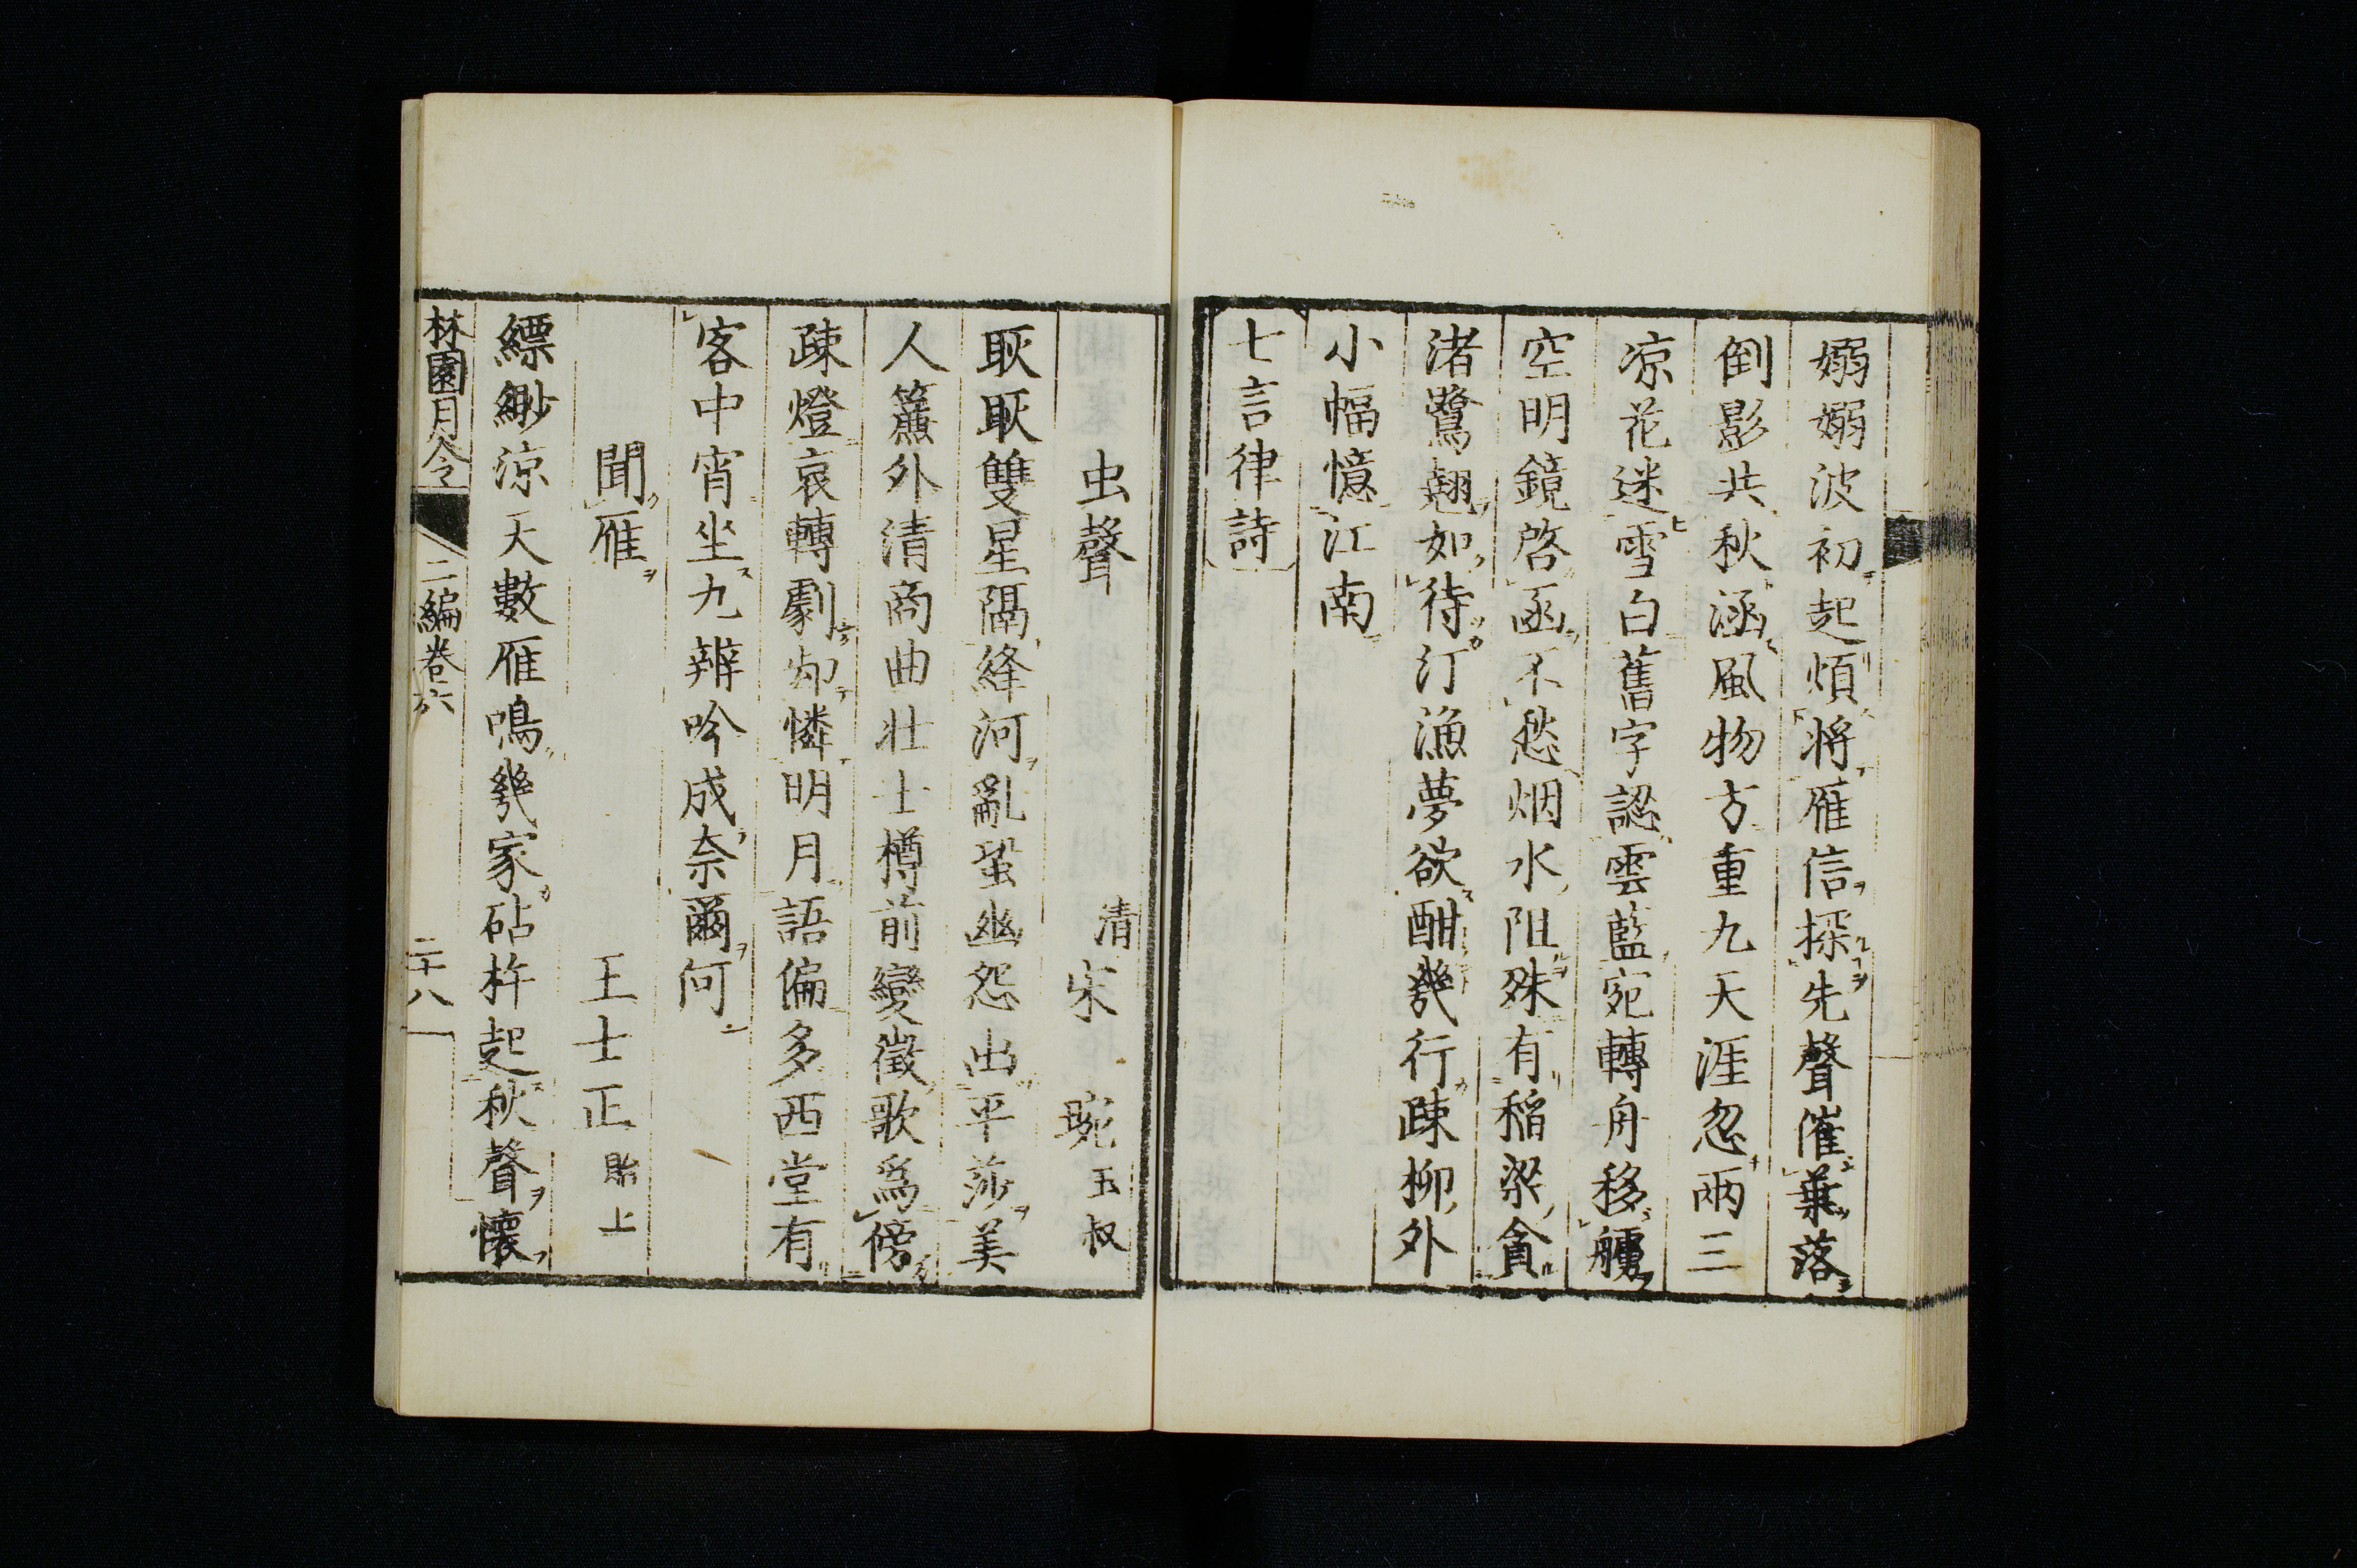 嫋嫋波初起煩將雁信探先聲催葉落
倒影共秋涵風物方重九天涯忽兩三
凉花迷雪白舊字認雲藍宛轉舟移
空明鏡啓函不愁烟水阻殊有稻粱貪
渚鷺翹如待汀漁夢欲酣幾行疎柳外
小幅憶江南
七言律詩
虫聲　清宋琬玉叔
耿耿雙星隔絳河亂蛩幽怨出平莎美
人簾外清商曲壯士樽前變徵歌爲傍
疎燈哀轉劇却憐明月語偏多西堂有
客中宵坐九辨吟成奈爾何
聞雁　王士正貽上
縹緲涼天數雁鳴幾家砧杵起秋聲懷
林園月令　二編卷六　二十八